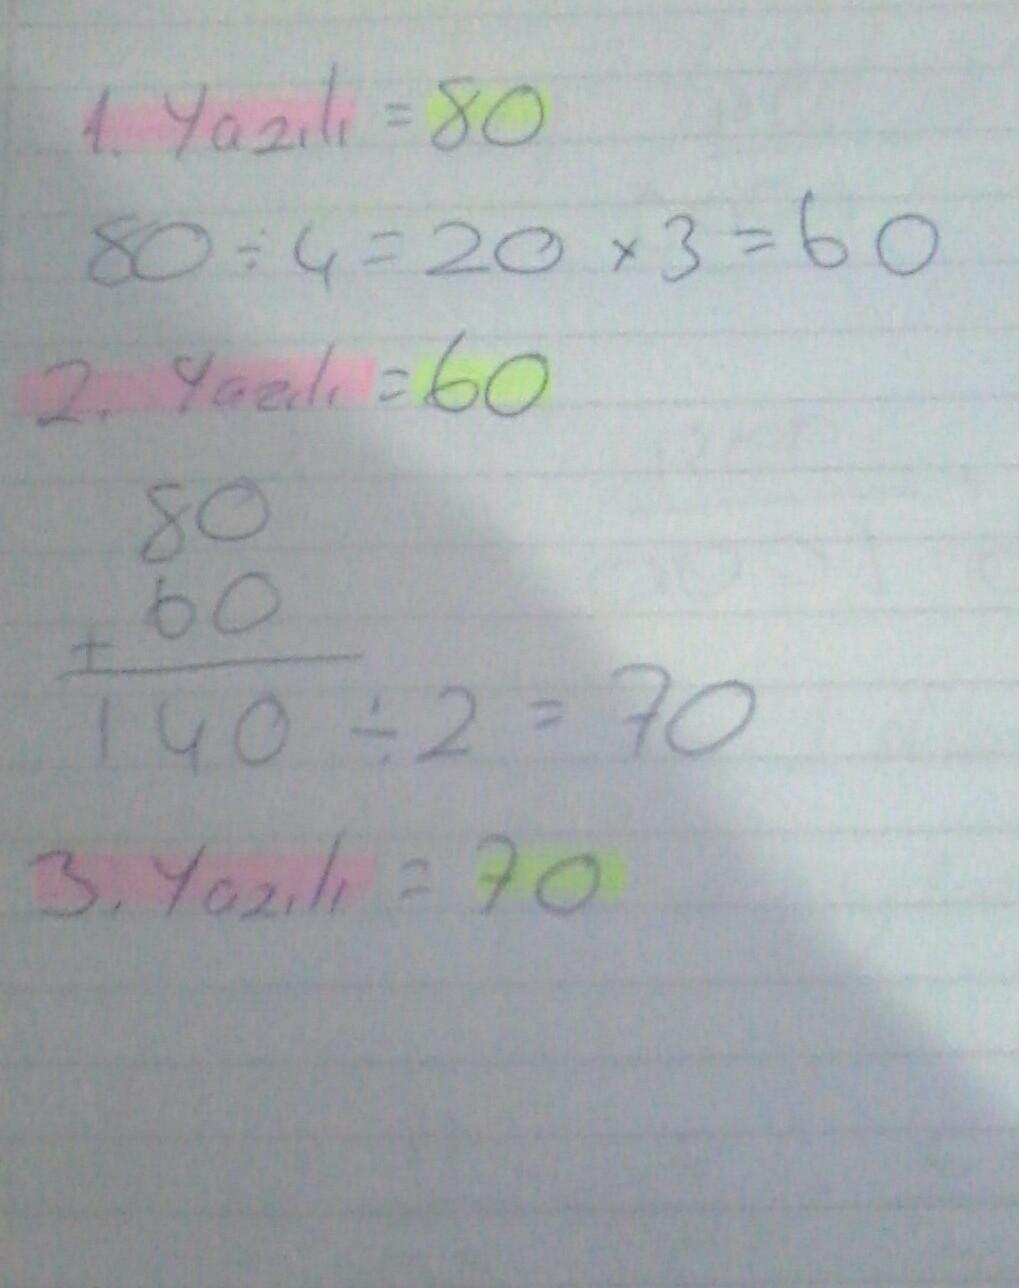 1. Yazılı = 80
80 ÷ 4 = 20 × 3 = 60
2. Yazılı = 60
80
+ 60
140 ÷ 2 = 70
3. Yazılı = 70